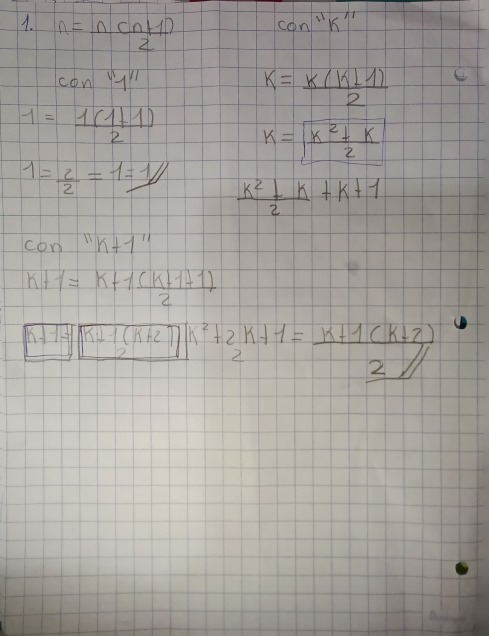 1. n = n(n+1)/2
con "1"
1 = 1(1+1)/2
1 = 2/2 = 1 = 1//
con "K"
K = K(K+1)/2
K = K²+K/2
K²+K/2 + K+1
con "K+1"
K+1 = K+1(K+1+1)/2
K+1= K+1(K+2)/2 K²+2K+1/2 = K+1(K+2)/2//